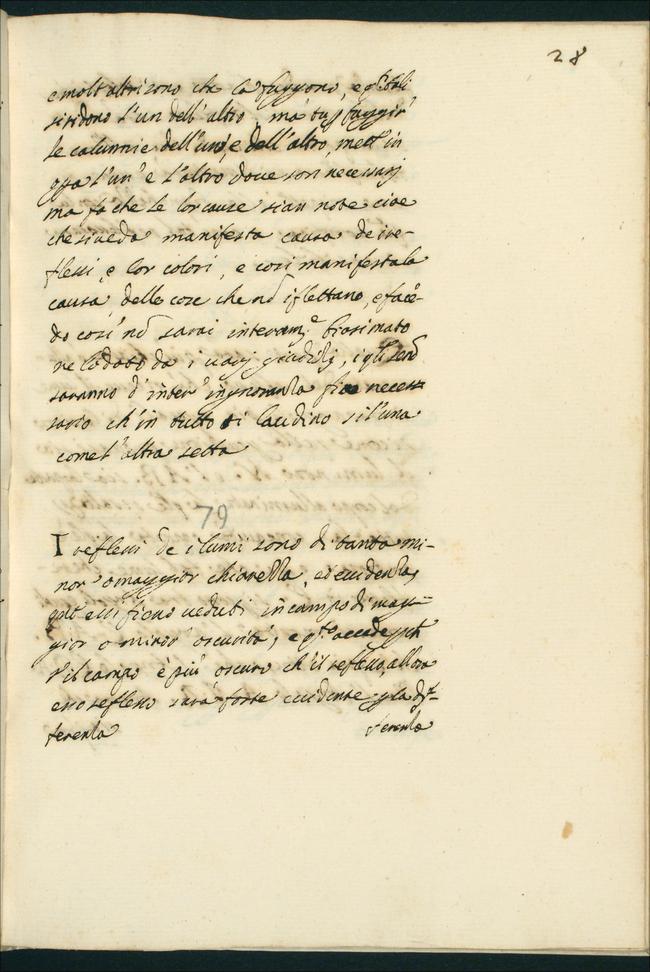 28
e molt'altri sono che la fuggono, e questi tali
si ridono l'un dell'altro, ma tu per fuggir
le calunnie dell'uno, e dell'altro, mett'in
opra l'un' e l'altro dove son necessarij
ma fa che le lor cause sian note cioe
che si veda manifesta causa de i re-
flessi, e lor colori, e cosi manifesta la
causa delle cose che nõ riflettano, e facẽ-
do cosi nõ sarai interam.e biasimato
ne lodato da i varj giudizij, i q.li se nõ
saranno d'inter' ingnoranza fia neces-
sario ch'in tutto ti laudino si l'una
come l'altra setta
79
I reflessi de i lumi sono di tanta mi-
nor' o maggior chiarezza, et evidenza,
q.to essi fieno veduti in campo di mag-
gior o minor' oscurità, e q.to accade
s'il campo è più oscuro ch'il reflesso, allora
esso reflesso sarà forte evidente p la dif-
ferenza ferenza